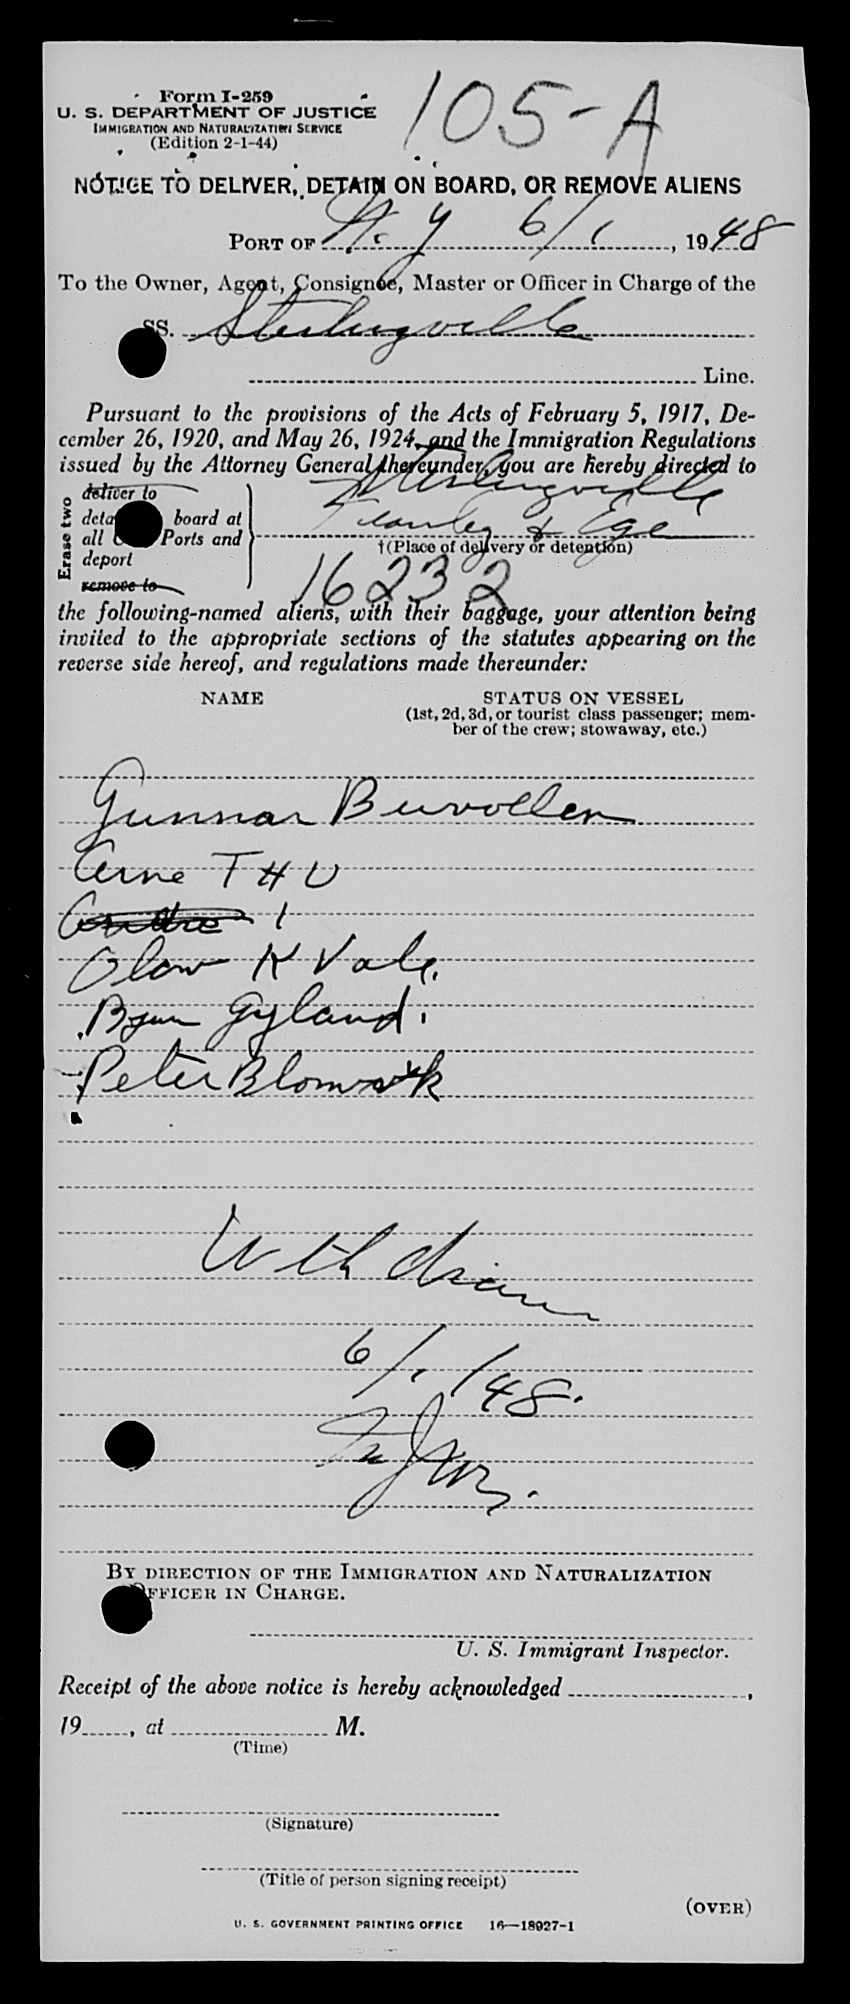 Form I-259
105-A
U. S. DEPARTMENT OF JUSTICE
IMMIGRATION AND NATURALIZATION SERVICE
(Edition 2-1-44)
NOTICE TO DELIVER, DETAIN ON BOARD, OR REMOVE ALIENS
PORT OF N. Y 6/1, 1948
To the Owner, Agent, Consignee, Master or Officer in Charge of the
SS. Sterlingville
Line.
Pursuant to the provisions of the Acts of February 5, 1917, De-
cember 26, 1920, and May 26, 1924, and the Immigration Regulations
issued by the Attorney General thereunder, you are hereby directed to
Erase two
deliver to
Sterlingville
board at
& Ege
all Ports and
†(Place of delivery or detention)
deport
remove to
16232
the following-named aliens, with their baggage, your attention being
invited to the appropriate sections of the statutes appearing on the
reverse side hereof, and regulations made thereunder:
NAME STATUS ON VESSEL
(1st, 2d, 3d, or tourist class passenger; mem-
ber of the crew; stowaway, etc.)
Gunnar Burvollen
Arne THU
Olav K Vale.
Gyland.
Peter
Withdrawn
6/1/48.
BY DIRECTION OF THE IMMIGRATION AND NATURALIZATION
OFFICER IN CHARGE.
U. S. Immigrant Inspector.
Receipt of the above notice is hereby acknowledged ,
19 , at M.
(Time)
(Signature)
(Title of person signing receipt)
(OVER)
U. S. GOVERNMENT PRINTING OFFICE 16—18927-1